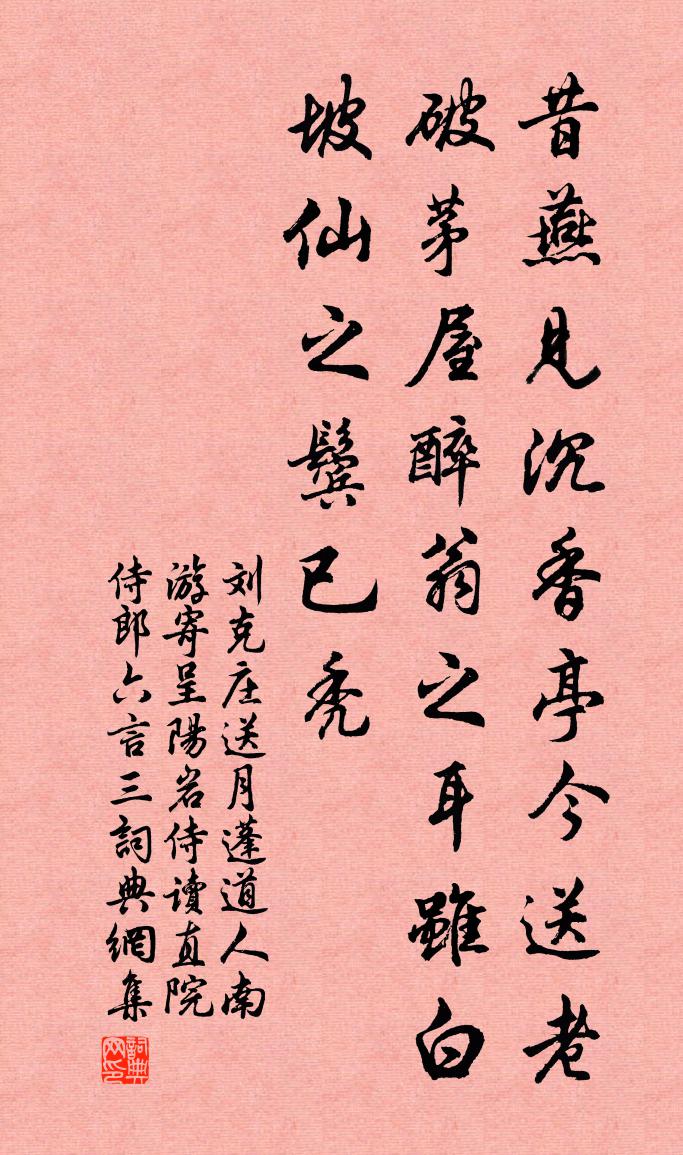 昔燕見沉香亭今送老
破茅屋醉翁之耳雖白
坡仙之鬓已秃
刘克庄送月蓬道人南
游寄呈陽岩侍讀直院
侍郎六言三詞典網集
詞典
网印